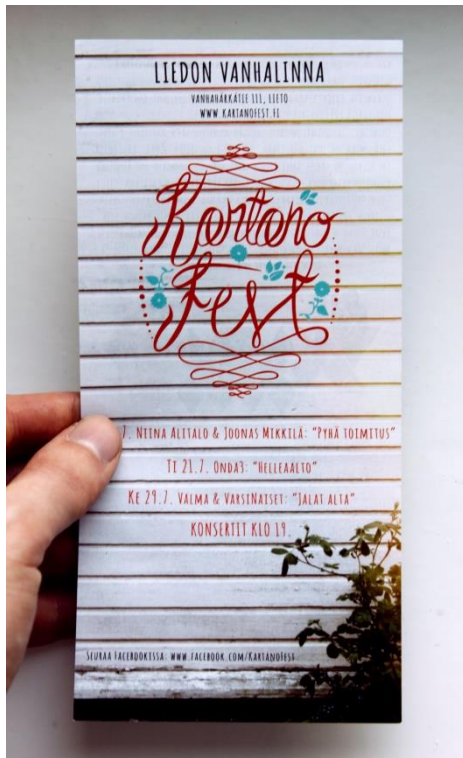 LIEDON VANHALINNA
VANHAHÄRKÄTIE 111, LIETO
WWW.KARTANOFEST.FI
Kartano
Fest
7. NIINA ALITALO & JOONAS MIKKILÄ: "PYHÄ TOIMITUS"
TI 21.7. ONDA3: "HELLEAALTO"
KE 29.7. VALMA & VARSINAISET: "JALAT ALTA"
KONSERTIT KLO 19
SEURAA FACEBOOKISSA: WWW.FACEBOOK.COM/KARTANOFEST